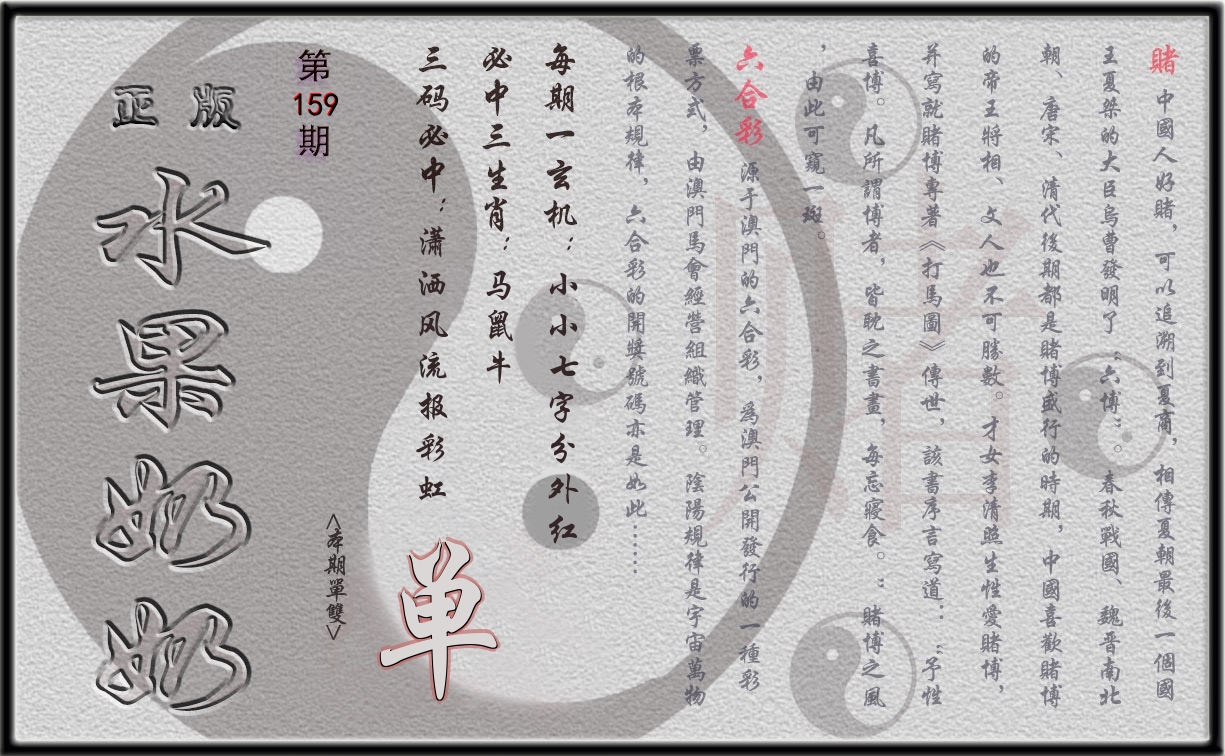 賭 中國人好賭，可以追溯到夏商，相傳夏朝最後一個國
王夏桀的大臣烏曹發明了“六博”。春秋戰國、魏晋南北
朝、唐宋、清代後期都是賭博盛行的時期，中國喜歡賭博
的帝王將相、文人也不可勝數。才女李清照生性愛賭博，
并寫就賭博專著《打馬圖》傳世，該書序言寫道：“予性
喜博。凡所謂博者，皆耽之書晝，每忘寢食。”賭博之風
，由此可窺一斑。
六合彩 源于澳門的六合彩，爲澳門公開發行的一種彩
票方式，由澳門馬會經營組織管理。陰陽規律是宇宙萬物
的根本規律，六合彩的開獎號碼亦是如此……
賭
每期一玄机：小小七字分外红
必中三生肖：马鼠牛
三码必中：潇洒风流报彩虹
单
<本期單雙>
第
159
期
正版
水果奶奶